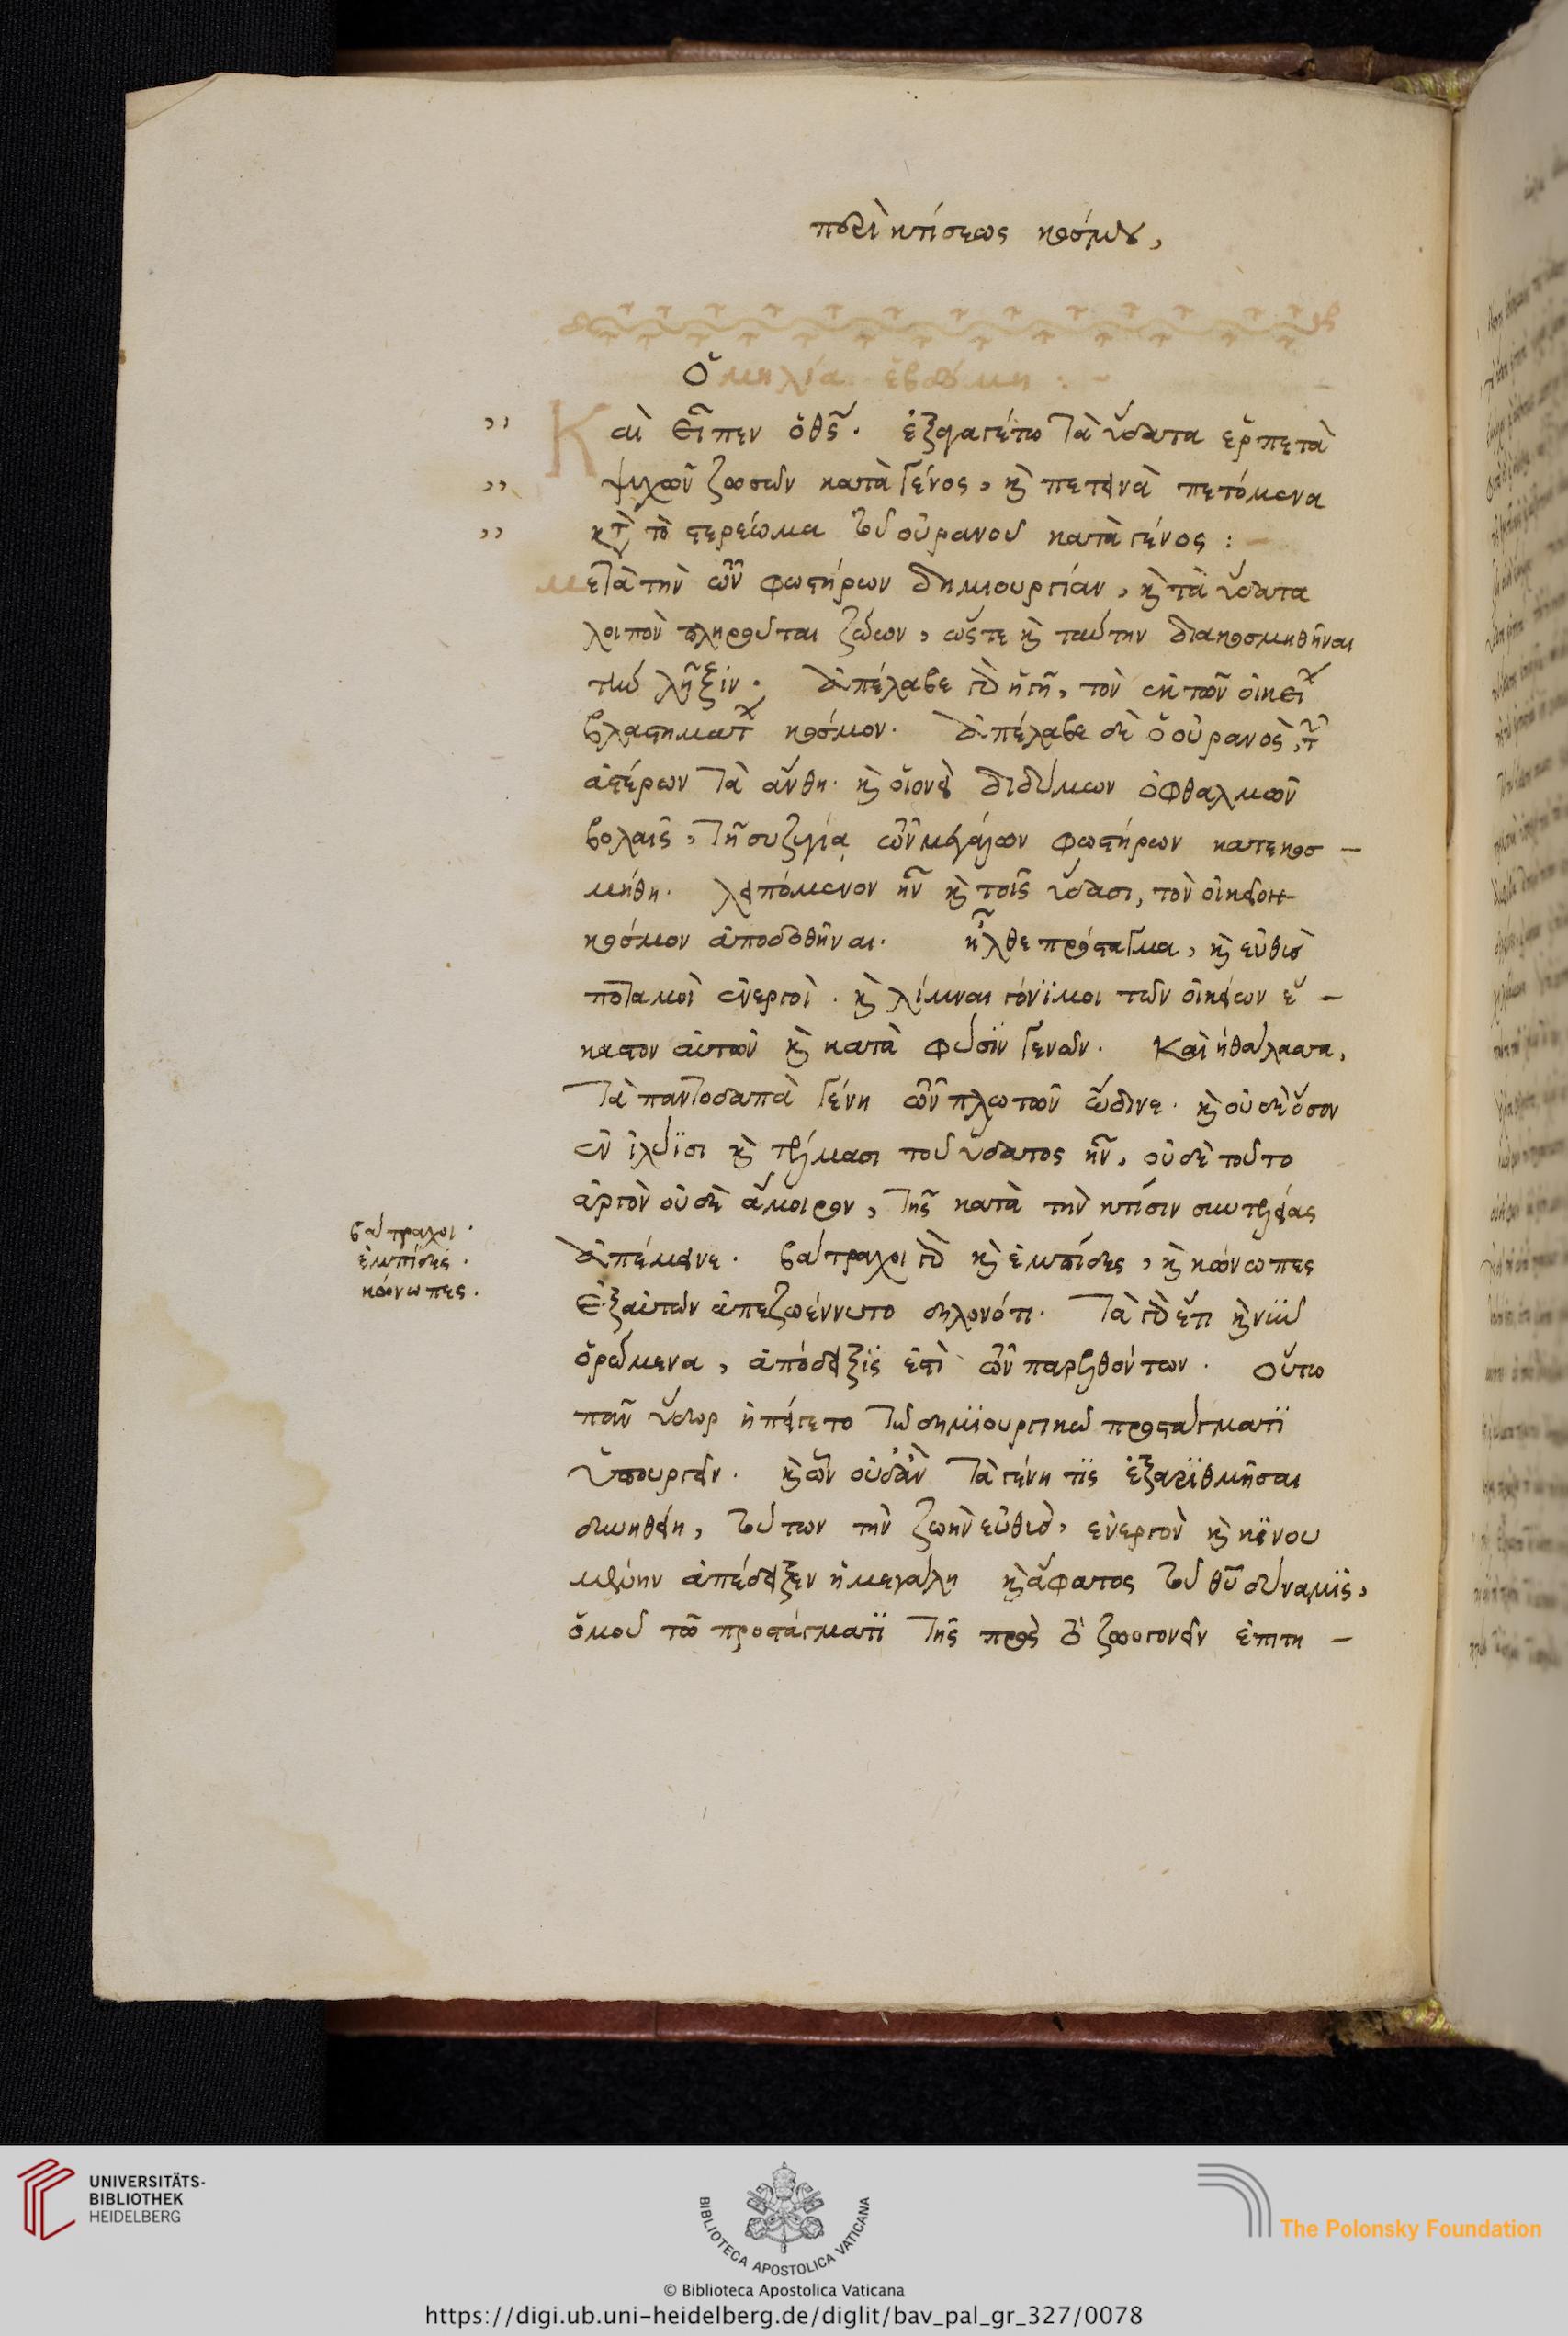 περὶ κτίσεως κόσμου,
Ὁμιλία ἑβδόμη : -
Καὶ εἶπεν ὁ θς. ἐξαγαγέτω τὰ ὕδατα ἑρπετὰ
ψυχῶν ζωσῶν κατὰ γένος, κ πετεινὰ πετόμενα
κτ τὸ στερέωμα τοῦ οὐρανοῦ κατὰ γένος : -
μετὰ τὴν τῶν φωστήρων δημιουργίαν, κ τὰ ὕδατα
λοιπὸν πληροῦται ζώων, ὥστε κ ταύτην διακοσμηθῆναι
τὴν λῆξιν. ἀπέλαβε γὰρ ἡ γῆ, τὸν ἐκ τῶν οἰκείων
βλαστημάτων κόσμον. ἀπέλαβε δὲ ὁ οὐρανὸς, τῶν
ἀστέρων τὰ ἄνθη. κ οἱονεὶ διδύμων ὀφθαλμῶν
βολαῖς, τῇ συζυγίᾳ τῶν μεγάλων φωστήρων κατεκοσ -
μήθη. λειπόμενον ἦν κ τοῖς ὕδασι, τὸν οἰκεῖον
κόσμον ἀποδοθῆναι. ἦλθε πρόσταγμα, κ εὐθὺς
ποταμοὶ ἐνεργοὶ. κ λίμναι γόνιμοι τῶν οἰκείων ἕ -
καστον αὐτῶν κ κατὰ φύσιν γενῶν. Καὶ ἡ θάλασσα,
τὰ παντοδαπὰ γένη τῶν πλωτῶν ὤδινε. κ οὐδὲ ὅσον
ἐν ἰλύϊσι κ τέλμασι τοῦ ὕδατος ἦν, οὐδὲ τοῦτο
ἀργὸν οὐδὲ ἄμοιρον, τῆς κατὰ τὴν κτίσιν συντελείας
ἀπέμεινε. βάτραχοι γὰρ κ ἐμπίδες, κ κώνωπες
ἐξ αὐτῶν ἀπεζωέννυτο δηλονότι. τὰ γὰρ ἔτι κ νῦν
ὁρώμενα, ἀπόδειξίς ἐστὶ τῶν παρελθόντων. Οὕτω
πᾶν ὕδωρ ἠπείγετο τῷ δημιουργικῷ προστάγματι
ὑπουργεῖν. κ ὧν οὐδ' ἂν τὰ γένη τὶς ἐξαριθμῆσαι
δυνηθείη, τούτων τὴν ζωὴν εὐθὺς, ἐνεργὸν κ κινου
μένην ἀπέδειξεν ἡ μεγάλη κ ἄφατος τοῦ θυ δύναμις,
ὁμοῦ τῷ προστάγματι τῆς πρὸς τὸ ζωογονεῖν ἐπιτη -
βάτραχοι.
ἐμπίδες.
κώνωπες.
UNIVERSITÄTS-
BIBLIOTHEK
HEIDELBERG
BIBLIOTECA APOSTOLICA VATICANA
© Biblioteca Apostolica Vaticana
The Polonsky Foundation
https://digi.ub.uni-heidelberg.de/diglit/bav_pal_gr_327/0078